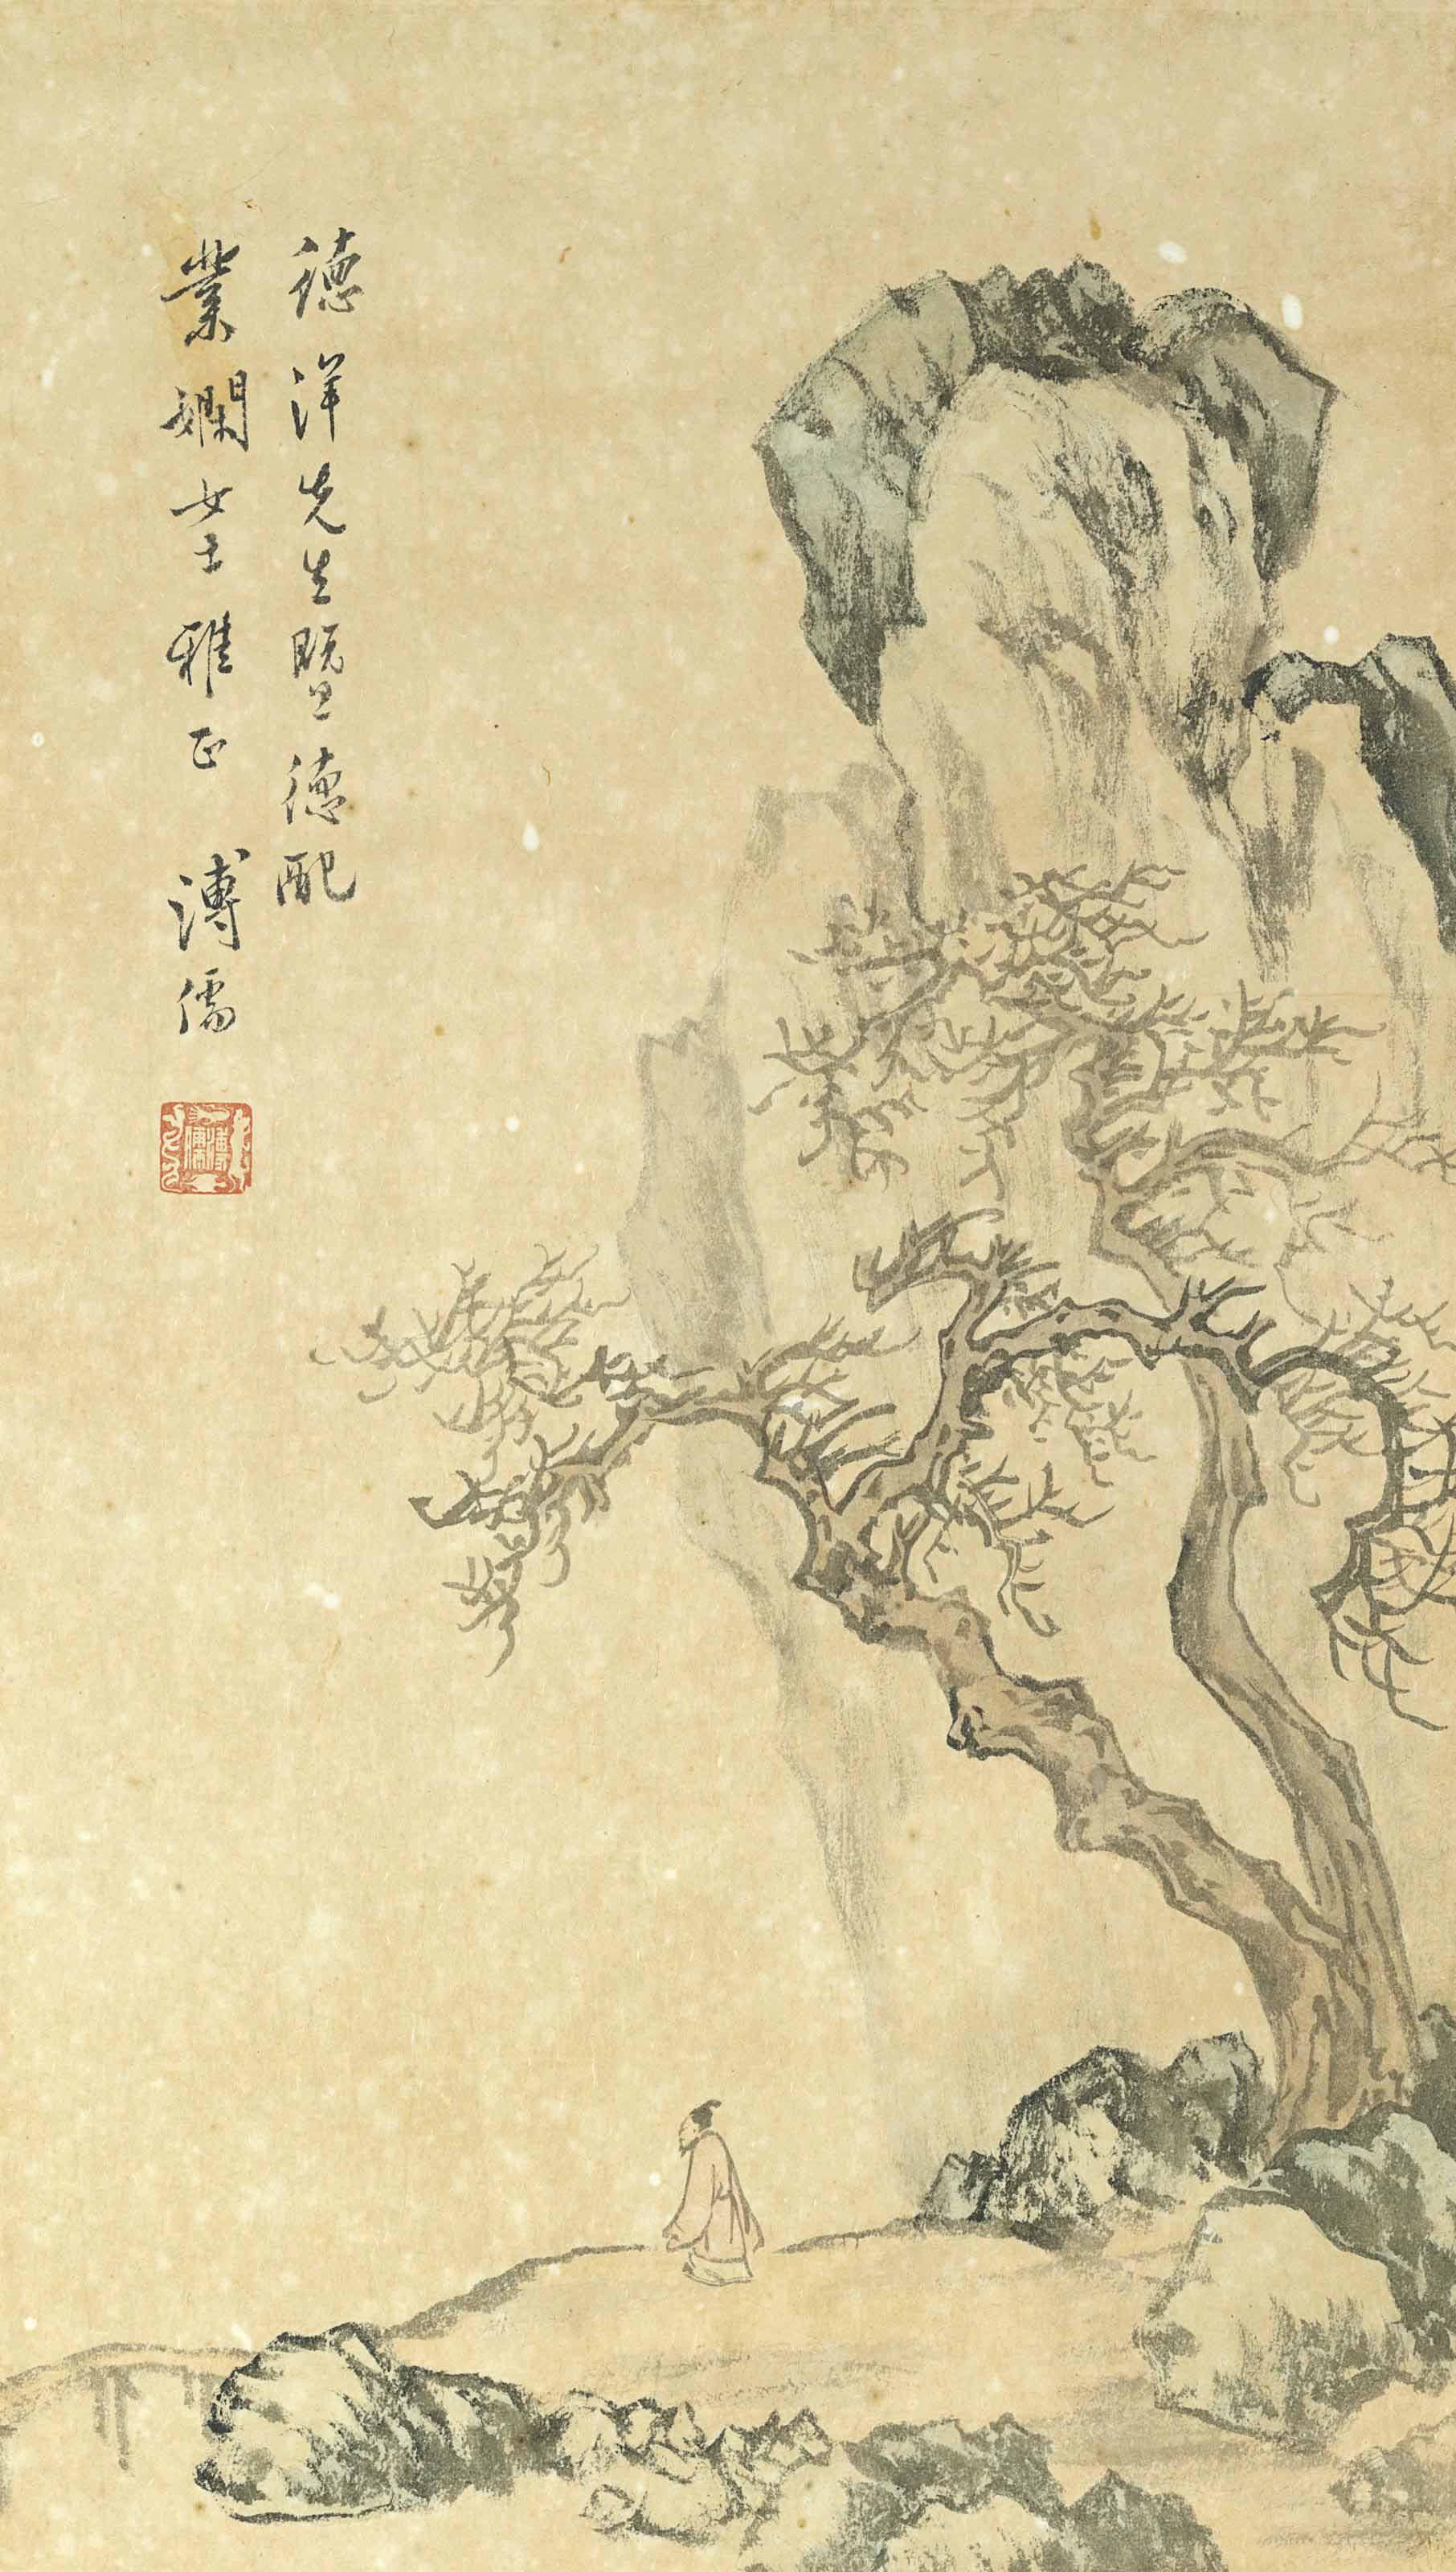 德洋先生暨德配
業嫻女士雅正 溥儒
溥儒